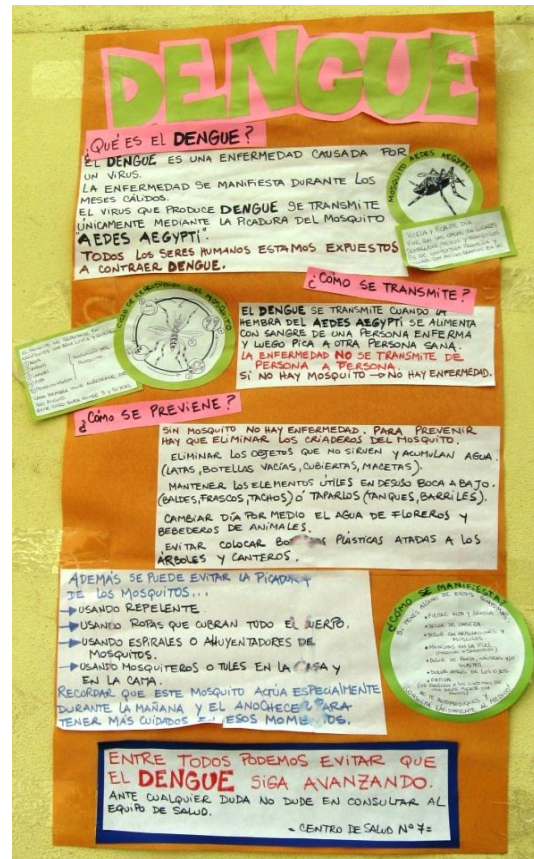 DENGUE
¿QUÉ ES EL DENGUE?
EL DENGUE ES UNA ENFERMEDAD CAUSADA POR
UN VIRUS.
LA ENFERMEDAD SE MANIFIESTA DURANTE LOS
MESES CÁLIDOS.
EL VIRUS QUE PRODUCE DENGUE SE TRANSMITE
ÚNICAMENTE MEDIANTE LA PICADURA DEL MOSQUITO
"AEDES AEGYPTI".
TODOS LOS SERES HUMANOS ESTAMOS EXPUESTOS
A CONTRAER DENGUE.
MOSQUITO AEDES AEGYPTI
¿CÓMO SE TRANSMITE?
EL DENGUE SE TRANSMITE CUANDO LA
HEMBRA DEL AEDES AEGYPTI SE ALIMENTA
CON SANGRE DE UNA PERSONA ENFERMA
Y LUEGO PICA A OTRA PERSONA SANA.
LA ENFERMEDAD NO SE TRANSMITE DE
PERSONA A PERSONA.
SI NO HAY MOSQUITO → NO HAY ENFERMEDAD.
¿CÓMO SE PREVIENE?
SIN MOSQUITO NO HAY ENFERMEDAD. PARA PREVENIR
HAY QUE ELIMINAR LOS CRIADEROS DEL MOSQUITO.
ELIMINAR LOS OBJETOS QUE NO SIRVEN Y ACUMULAN AGUA.
(LATAS, BOTELLAS VACÍAS, CUBIERTAS, MACETAS).
MANTENER LOS ELEMENTOS ÚTILES EN DESUSO BOCA ABAJO.
(BALDES, FRASCOS, TACHOS) Ó TAPARLOS (TANQUES, BARRILES).
CAMBIAR DÍA POR MEDIO EL AGUA DE FLOREROS Y
BEBEDEROS DE ANIMALES.
EVITAR COLOCAR PLÁSTICAS ATADAS A LOS
ÁRBOLES Y CANTEROS.
ADEMÁS SE PUEDE EVITAR LA PICADURA
DE LOS MOSQUITOS...
→ USANDO REPELENTE.
→ USANDO ROPAS QUE CUBRAN TODO EL CUERPO.
→ USANDO ESPIRALES O AHUYENTADORES DE
MOSQUITOS.
→ USANDO MOSQUITEROS O TULES EN LA CASA Y
EN LA CAMA.
RECORDAR QUE ESTE MOSQUITO ACTÚA ESPECIALMENTE
DURANTE LA MAÑANA Y EL ANOCHECER PARA
TENER MÁS CUIDADOS EN ESOS MOMENTOS.
¿CÓMO SE MANIFIESTA?
• DOLOR DE CABEZA
• FATIGA
ENTRE TODOS PODEMOS EVITAR QUE
EL DENGUE SIGA AVANZANDO.
ANTE CUALQUIER DUDA NO DUDE EN CONSULTAR AL
EQUIPO DE SALUD.
- CENTRO DE SALUD Nº 7 =